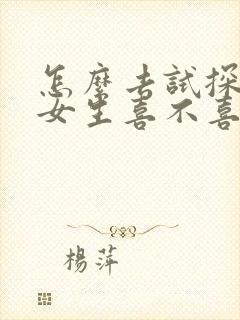 怎麼去試探
女生喜不喜
楊萍